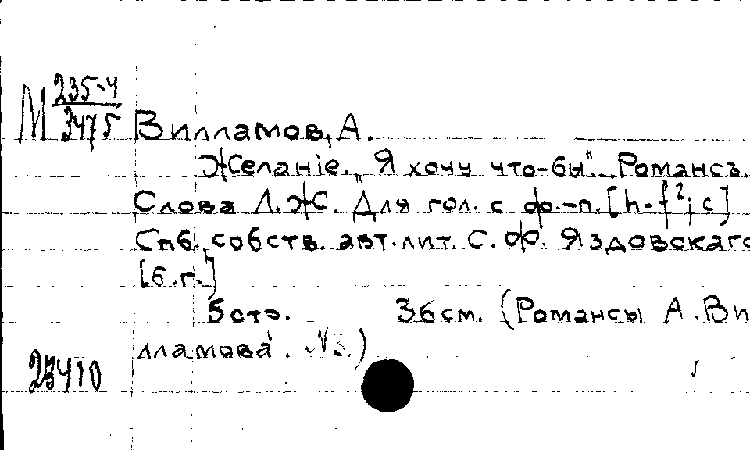 М 235-4
3475
Вилламов, А.
Желанiе. "Я хочу что-бы". Романсъ.
Слова Л. Ж. Для гол. с ф.-п. [h-f²; c]
Спб. собств. авт. лит. С. Ф. Яздовскаго
[б.г.]
5 стр. 36 см. (Романсы А. Ви-
лламова. №3.)
23410